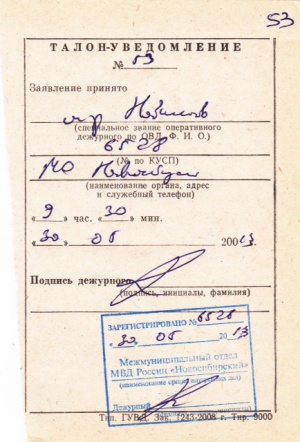 53
ТАЛОН-УВЕДОМЛЕНИЕ
№ 53
Заявление принято
(специальное звание оперативного
дежурного по ОВД, Ф. И. О.)
6528
(№ по КУСП)
МО Новосибирс
(наименование органа, адрес
и служебный телефон)
« 9 » час. « 30 » мин.
« 30 » 05 2013г.
Подпись дежурного
(подпись, инициалы, фамилия)
ЗАРЕГИСТРИРОВАНО № 6528
« 30 » 05 2013
Межмуниципальный отдел
МВД России «Новосибирский»
(наименование органа внутренних дел)
Дежурный
Тип. ГУВД. Зак. 1243-2008 г. Тир. 9000